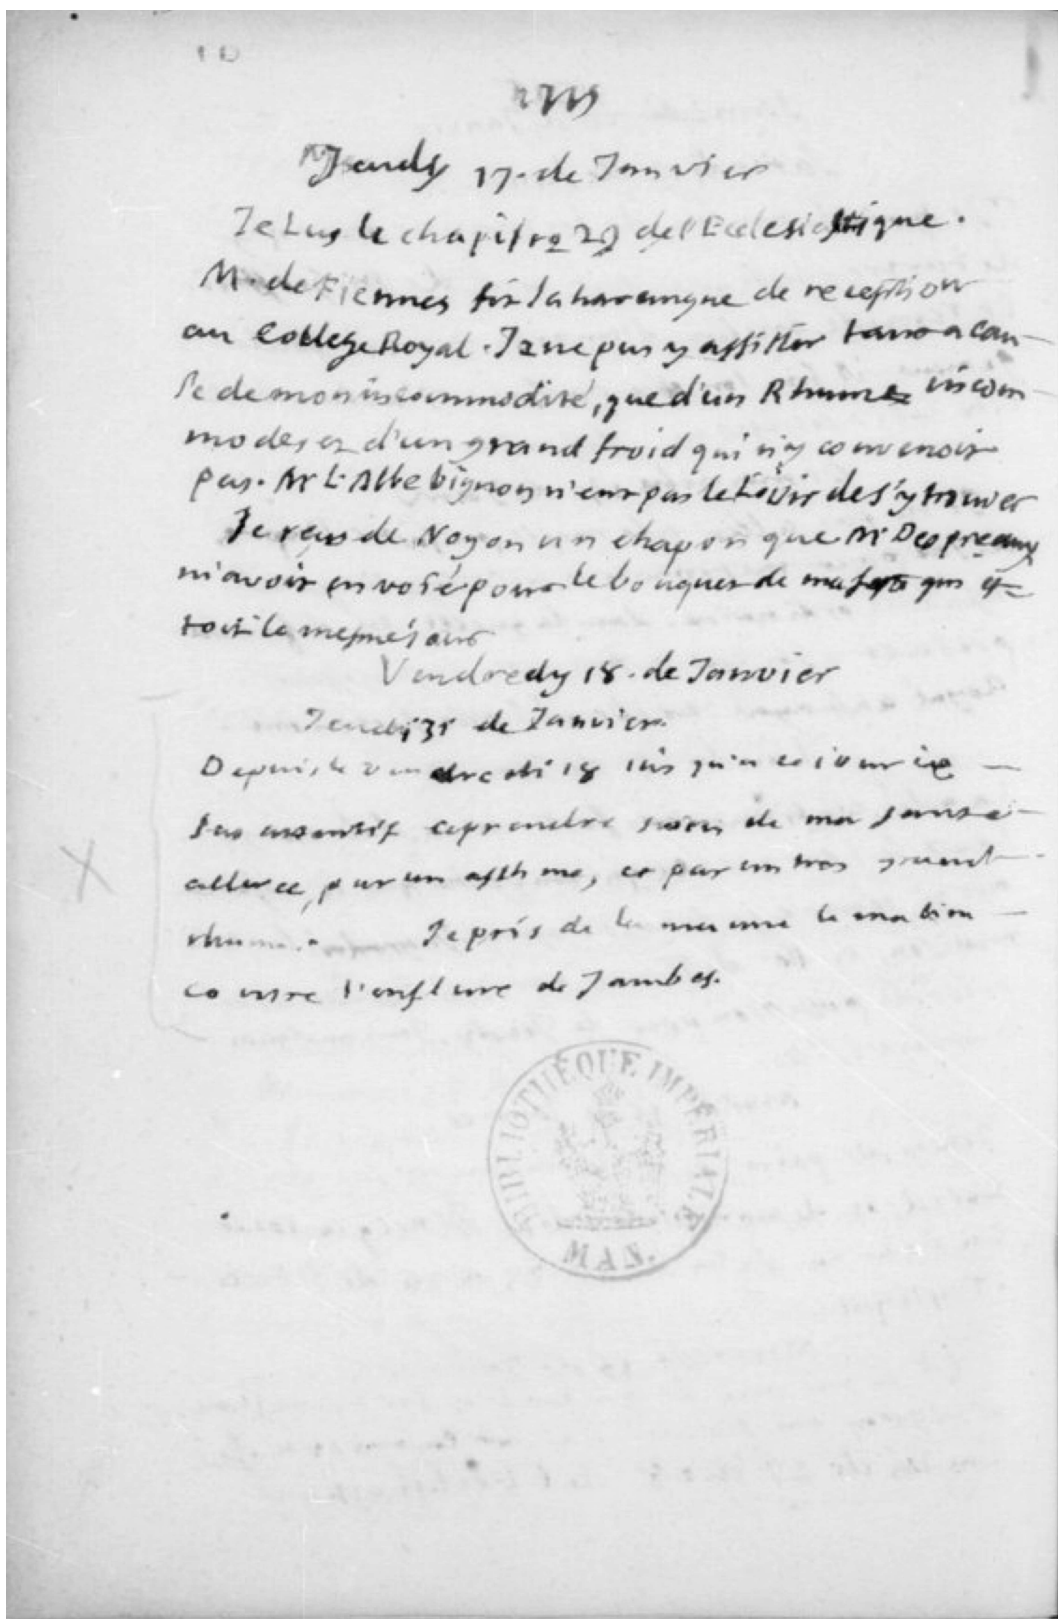 1715
Jeudy 17. de Janvier
Je Lus le chapitre 29 de l'Ecclesiastique.
M. de Fiennes fit la harangue de reception
au College Royal. Je ne pus y assister tant a cau-
se de mon incommodité, que d'un Rhume incom-
mode, et d'un grand froid qui n'y convenoit
pas. Mr L'Abbé bignon n'eut pas le loisir de s'y trouver
Je reçus de Noyon un chapon que Mr Despreaux
m'avoit envoié pour le bouquet de ma feste qui é-
toit le mesme jour
Vendredy 18. de Janvier
Jeudi 31 de Janvier.
Depuis le vendredi 18 jusqu'a ce jour ie
fus attentif a prendre soin de ma santé
alterée, par un asthme, et par un tres grand
rhume. Je pris de la le matin
contre l'enflure de Jambes.
BIBLIOTHÈQUE IMPÉRIALE
MAN.